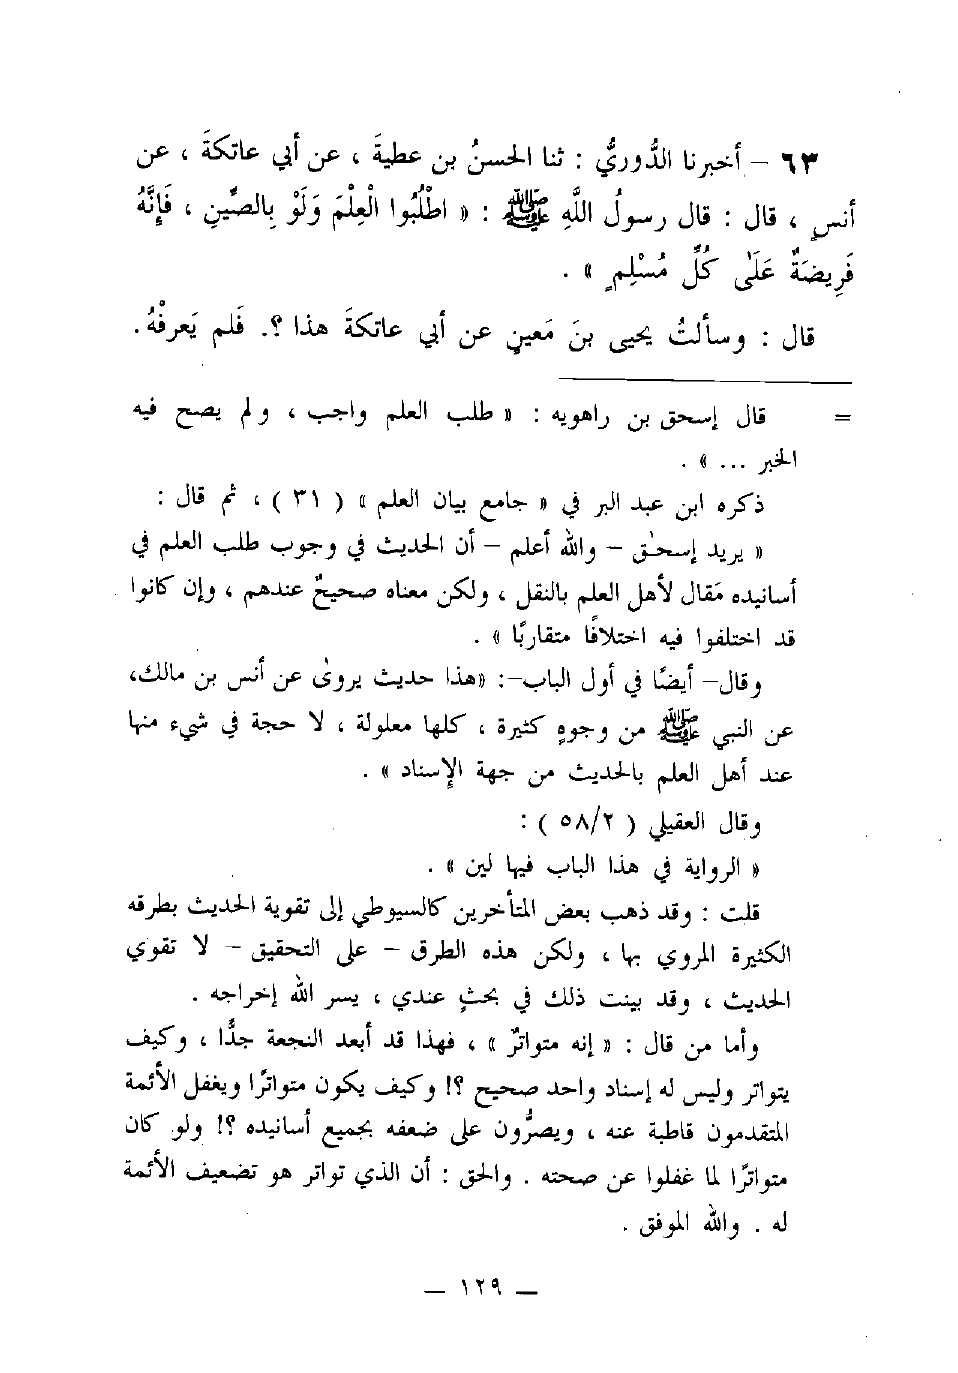 ٦٣ – أخبرنا الدُّوريُّ : ثنا الحسنُ بن عطيةَ ، عن أبي عاتكةَ ، عن
أنسٍ ، قال : قال رسولُ اللَّهِ ﷺ : « اطْلُبُوا الْعِلْمَ وَلَوْ بِالصِّينِ ، فَإِنَّهُ
فَرِيضَةٌ عَلَىٰ كُلِّ مُسْلِمٍ » .
قال : وسألتُ يحيى بنَ مَعينٍ عن أبي عاتكةَ هذا ؟. فَلم يَعرفْهُ.
= قال إسحق بن راهويه : « طلب العلم واجب ، ولم يصح فيه
الخبر ... » .
ذكره ابن عبد البر في « جامع بيان العلم » ( ٣١ ) ، ثم قال :
« يريد إسحٰق – والله أعلم – أن الحديث في وجوب طلب العلم في
أسانيده مَقال لأهل العلم بالنقل ، ولكن معناه صحيحٌ عندهم ، وإن كانوا
قد اختلفوا فيه اختلافًا متقاربًا » .
وقال– أيضًا في أول الباب–: «هذا حديث يروىٰ عن أنس بن مالك،
عن النبي ﷺ من وجوهٍ كثيرة ، كلها معلولة ، لا حجة في شيء منها
عند أهل العلم بالحديث من جهة الإسناد » .
وقال العقيلي ( ٥٨/٢ ) :
« الرواية في هذا الباب فيها لين » .
قلت : وقد ذهب بعض المتأخرين كالسيوطي إلى تقوية الحديث بطرقه
الكثيرة المروي بها ، ولكن هذه الطرق – على التحقيق – لا تقوي
الحديث ، وقد بينت ذلك في بحثٍ عندي ، يسر الله إخراجه .
وأما من قال : « إنه متواترٌ » ، فهذا قد أبعد النجعة جدًّا ، وكيف
يتواتر وليس له إسناد واحد صحيح ؟! وكيف يكون متواترًا ويغفل الأئمة
المتقدمون قاطبة عنه ، ويصرُّون على ضعفه بجميع أسانيده ؟! ولو كان
متواترًا لما غفلوا عن صحته . والحق : أن الذي تواتر هو تضعيف الأئمة
له . والله الموفق .
– ١٢٩ –